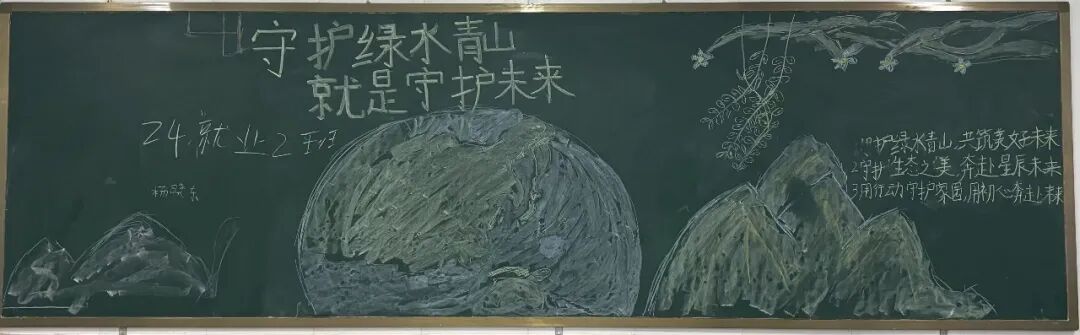 守护绿水青山
就是守护未来
24.就业2班
杨晓东
1.守护绿水青山,共筑美好未来
2.守护生态之美,奔赴星辰未来
3.用行动守护家园,用初心奔赴未来